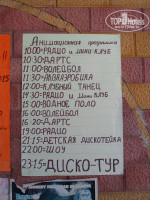 TOPHOTELS
Анимационная программа
10:00-РАДИО и МИНИ КЛУБ
10:30-ДАРТС
11:00-ВОЛЕЙБОЛ
11:30-АКВААЭРОБИКА
12:00-КЛУБНЫЙ ТАНЕЦ
14:30-РАДИО и МИНИ КЛУБ
15:00-ВОДНОЕ ПОЛО
16:00-ВОЛЕЙБОЛ
16:30-ДАРТС
19:00-РАДИО
21:15-ДЕТСКАЯ ДИСКОТЕКА
22:00-ШОУ
23:15-ДИСКО-ТУР